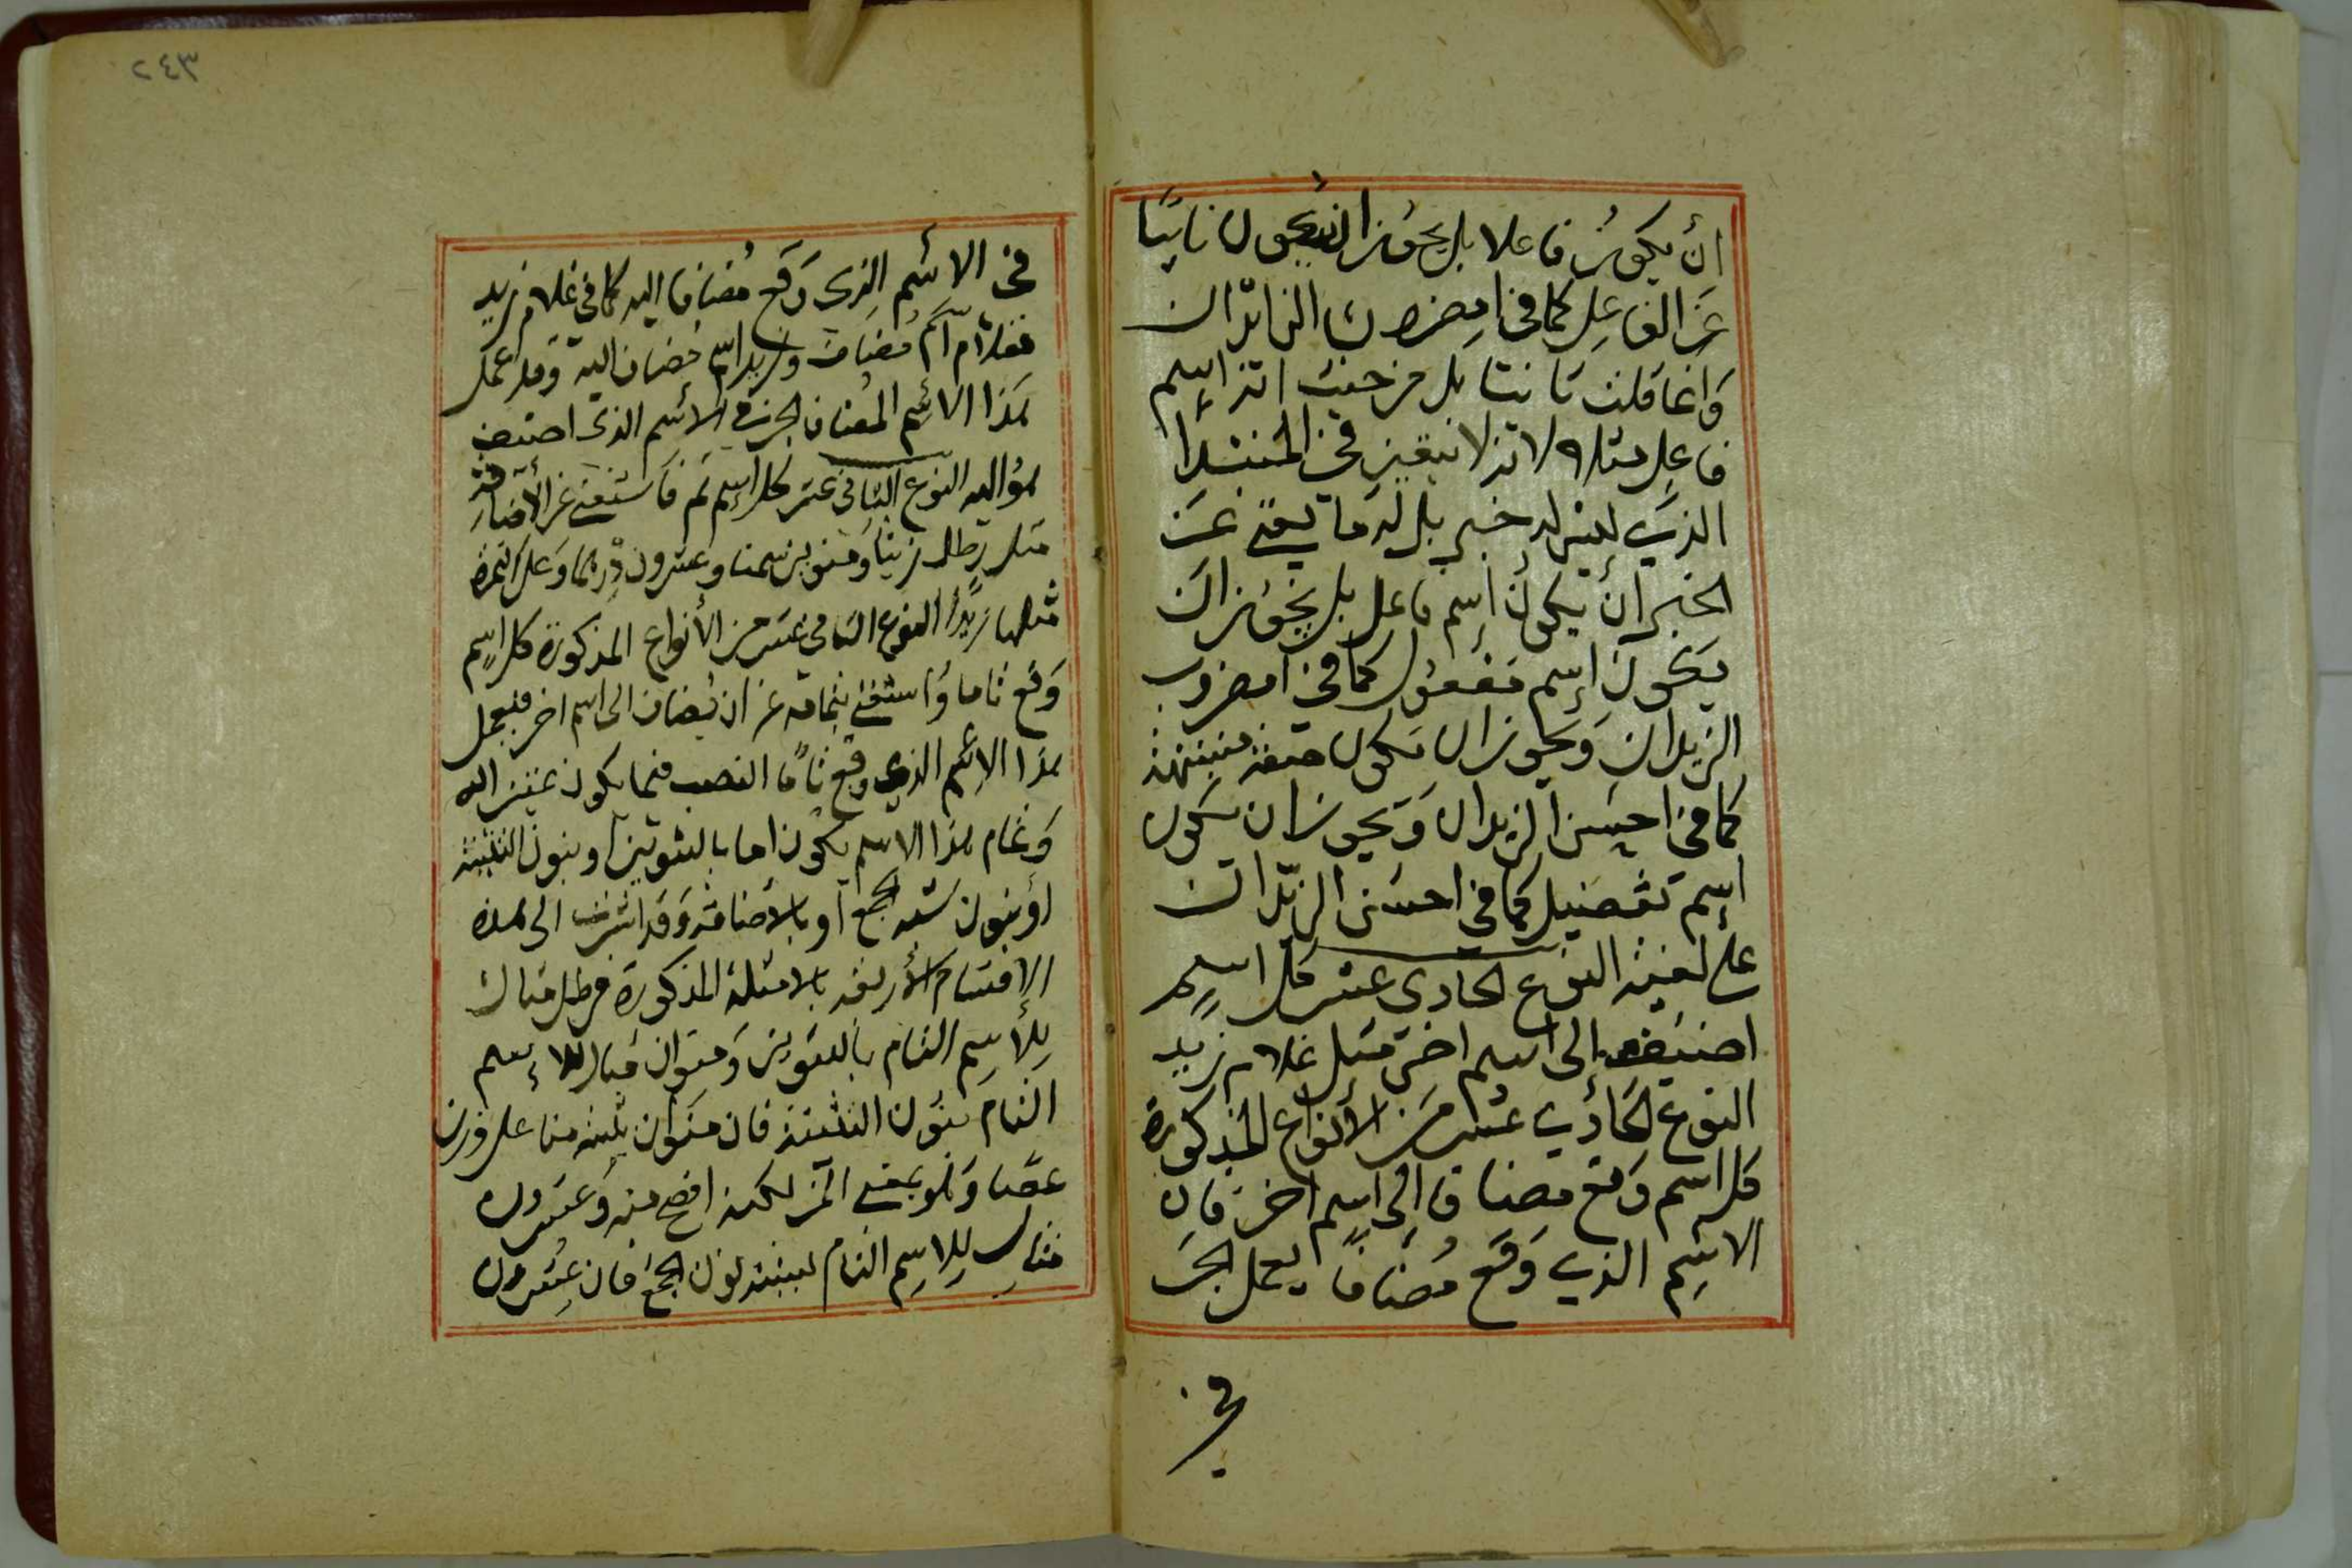 أن يكون فاعلا بل يجوز ان يكون نائبا
عن الفاعل كما في امضروب الزيدان
وانما قلت تا نتا بل من حيث انه اسم
فاعل مثلا لانه لا يتعين في المبتدأ
الذي ليس له خبر بل له ما يغني عن
الخبر أن يكون إسم فاعل بل يجوز ان
يكون إسم مفعول كما في امضروب
الزيدان ويجوز ان يكون صفة مشبهة
كما في احسن الزيدان ويجوز ان يكون
اسم تفضيل كما في احسن الزيدان
على لغية النوع الحادي عشر كل اسم
اضيف إلى اسم اخر مثل غلام زيد
النوع الحادي عشر من الأنواع المذكورة
كل اسم وقع مضافا إلى اسم اخر فان
الاسم الذي وقع مضافا يعمل الجر
في
٢٤٣
في الاسم الذي وقع مضافا اليه كما في غلام زيد
فغلام اسم مضاف وزيد اسم مضاف اليه وقد عمل
هذا الاسم المضاف الجر في الاسم الذي اضيف
هو اليه النوع الثاني عشر كل إسم تم فاستغنى عن الأضافة
مثل رطل زيتا ومنوين سمنا وعشرون درهما وعلى التمرة
مثلها زبدا النوع الثاني عشر من الأنواع المذكورة كل اسم
وقع تاما واستغنى بتمامه عن ان يضاف الى اسم اخر فيعمل
هذا الاسم الذي وقع تاما النصب فيما يكون تمييزا له
وتمام هذا الاسم يكون اما بالتنوين او بنون التثنية
او بنون شبه الجمع او بالأضافة وقد اشرت الى هذه
الاقسام الأربعة بالامثلة المذكورة فرطل مثال
للأسم التام بالتنوين ومنوان مثال للإسم
التام بنون التثنية فان منوان تثنية منا على وزن
عصا وهو بمعنى المن لكنه افصح منه وعشرون
مثال للاسم التام لشبه نون الجمع فان عشرون